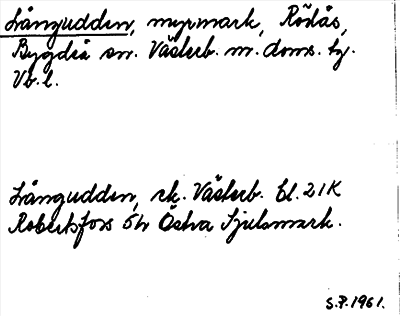 Långudden, myrmark, Rödås,
Bygdeå sn. Västerb. m. doms. tg.
Vb. l.
Långudden, rk. Västerb. bl. 21K
Robertsfors 5h Östra Sjulsmark.
S.P. 1961.